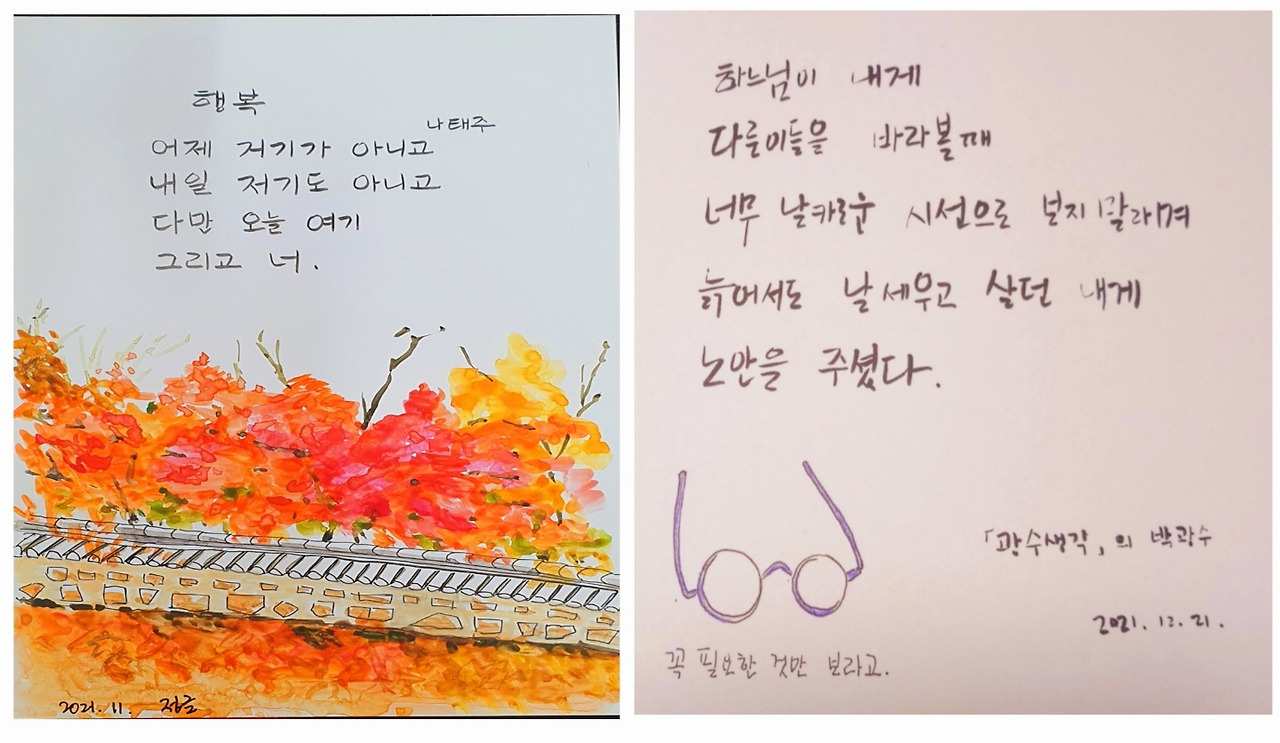 행복
나태주
어제 거기가 아니고
내일 저기도 아니고
다만 오늘 여기
그리고 너.
2021. 11.
하느님이 내게
다른이들을 바라볼때
너무 날카로운 시선으로 보지말라며
늙어서도 날 세우고 살던 내게
노안을 주셨다.
「광수생각」의 박광수
2021. 12. 21.
꼭 필요한 것만 보라고.